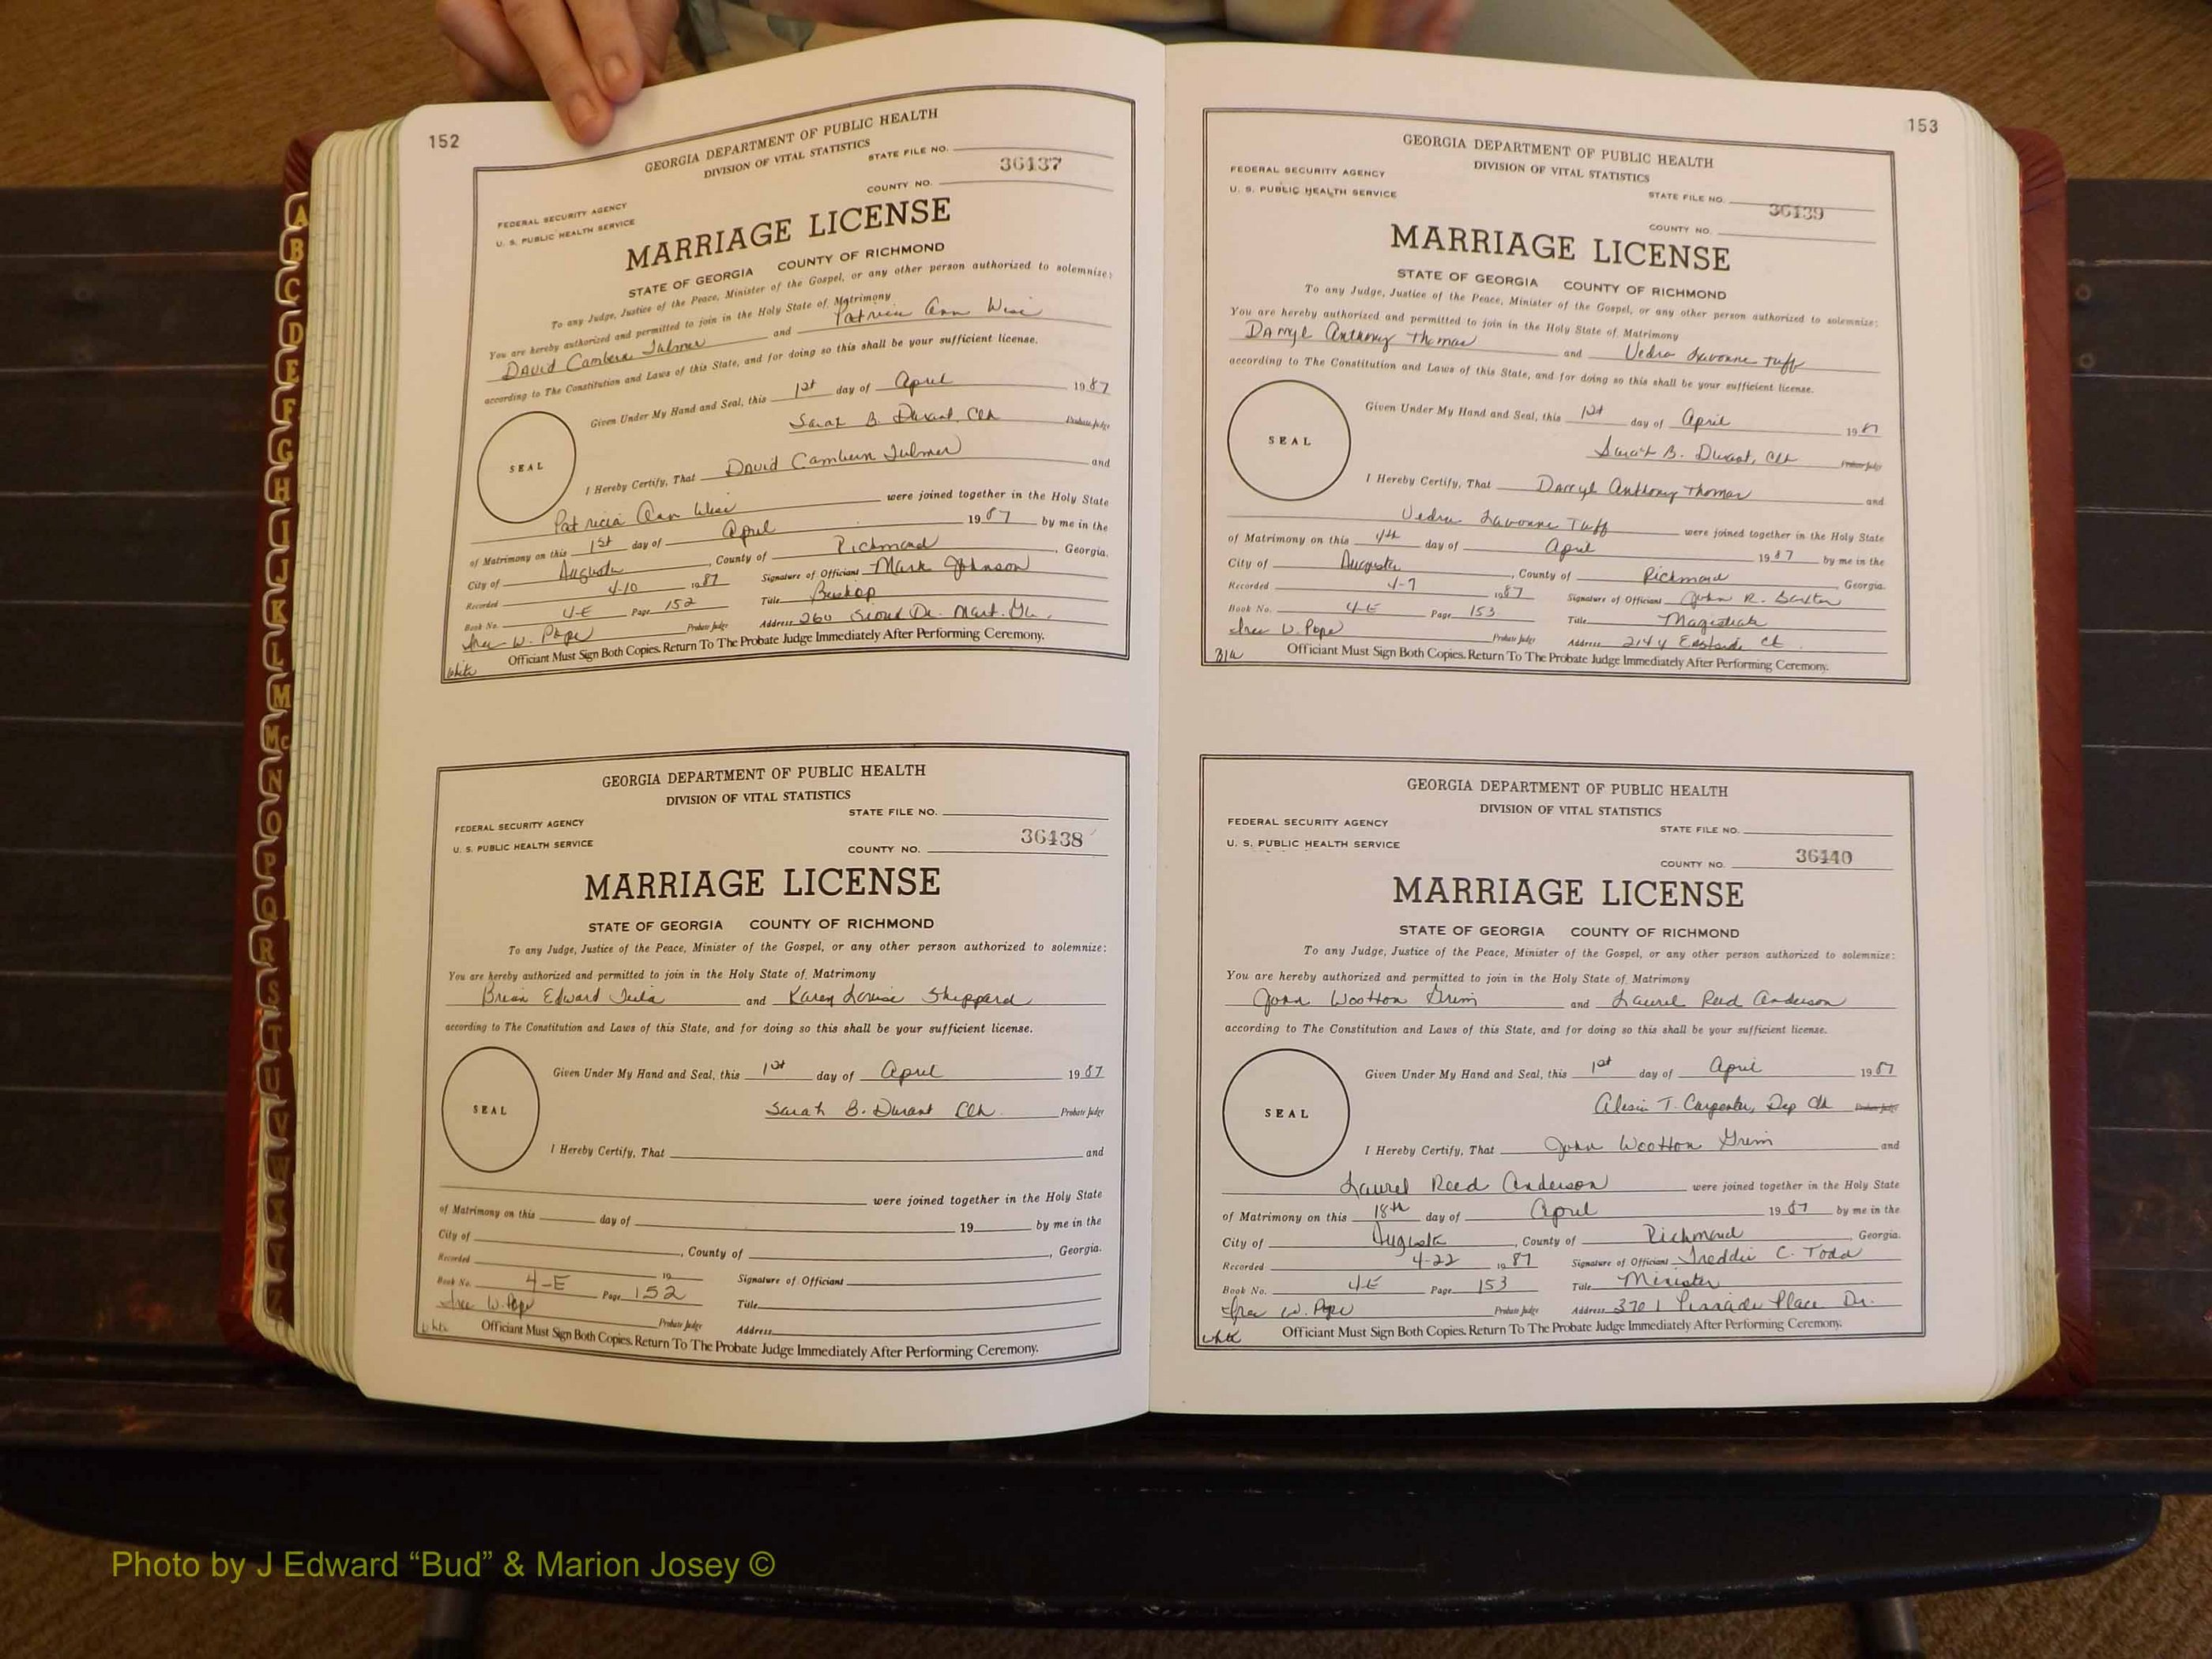 152
GEORGIA DEPARTMENT OF PUBLIC HEALTH
DIVISION OF VITAL STATISTICS
STATE FILE NO.
36437
COUNTY NO.
FEDERAL SECURITY AGENCY
U. S. PUBLIC HEALTH SERVICE
MARRIAGE LICENSE
STATE OF GEORGIA COUNTY OF RICHMOND
To any Judge, Justice of the Peace, Minister of the Gospel, or any other person authorized to solemnize:
You are hereby authorized and permitted to join in the Holy State of Matrimony
David and Patricia Ann Wise
according to The Constitution and Laws of this State, and for doing so this shall be your sufficient license.
Given Under My Hand and Seal, this 1st day of April 1987
Sarah B. Durant, Clk Probate Judge
SEAL
I Hereby Certify, That David and
Patricia Ann Wise were joined together in the Holy State
of Matrimony on this 1st day of April 1987 by me in the
City of Augusta, County of Richmond, Georgia.
Recorded 4-10 1987 Signature of Officiant Mark Johnson
Book No. 4-E Page 152 Title Bishop
W. Pope Probate Judge Address 260 Dr. Mart. Ga.
white Officiant Must Sign Both Copies. Return To The Probate Judge Immediately After Performing Ceremony.
GEORGIA DEPARTMENT OF PUBLIC HEALTH
DIVISION OF VITAL STATISTICS
STATE FILE NO.
FEDERAL SECURITY AGENCY
36438
U. S. PUBLIC HEALTH SERVICE
COUNTY NO.
MARRIAGE LICENSE
STATE OF GEORGIA COUNTY OF RICHMOND
To any Judge, Justice of the Peace, Minister of the Gospel, or any other person authorized to solemnize:
You are hereby authorized and permitted to join in the Holy State of Matrimony
Brian Edward and Karen Louise Sheppard
according to The Constitution and Laws of this State, and for doing so this shall be your sufficient license.
Given Under My Hand and Seal, this 1st day of April 1987
SEAL
Sarah B. Durant Clk Probate Judge
I Hereby Certify, That and
were joined together in the Holy State
of Matrimony on this day of 19 by me in the
City of , County of , Georgia.
Recorded 19 Signature of Officiant
Book No. 4-E Page 152 Title
W. Pope Probate Judge Address
white Officiant Must Sign Both Copies. Return To The Probate Judge Immediately After Performing Ceremony.
153
GEORGIA DEPARTMENT OF PUBLIC HEALTH
DIVISION OF VITAL STATISTICS
FEDERAL SECURITY AGENCY
U. S. PUBLIC HEALTH SERVICE
STATE FILE NO.
36439
COUNTY NO.
MARRIAGE LICENSE
STATE OF GEORGIA COUNTY OF RICHMOND
To any Judge, Justice of the Peace, Minister of the Gospel, or any other person authorized to solemnize:
You are hereby authorized and permitted to join in the Holy State of Matrimony
Darryl Anthony Thomas and Vedra Lavonne Tuff
according to The Constitution and Laws of this State, and for doing so this shall be your sufficient license.
Given Under My Hand and Seal, this 1st day of April 1987
SEAL
Sarah B. Durant, Clk Probate Judge
I Hereby Certify, That Darryl Anthony Thomas and
Vedra Lavonne Tuff were joined together in the Holy State
of Matrimony on this day of April 1987 by me in the
City of Augusta, County of Richmond Georgia.
Recorded 4-7 1987 Signature of Officiant John R.
Book No. 4-E Page 153 Title Magistrate
W. Pope Probate Judge Address 2144 Ct.
Blk Officiant Must Sign Both Copies. Return To The Probate Judge Immediately After Performing Ceremony.
GEORGIA DEPARTMENT OF PUBLIC HEALTH
DIVISION OF VITAL STATISTICS
FEDERAL SECURITY AGENCY
STATE FILE NO.
U. S. PUBLIC HEALTH SERVICE
36440
COUNTY NO.
MARRIAGE LICENSE
STATE OF GEORGIA COUNTY OF RICHMOND
To any Judge, Justice of the Peace, Minister of the Gospel, or any other person authorized to solemnize:
You are hereby authorized and permitted to join in the Holy State of Matrimony
John Wootton Grim and Laurel Reed Anderson
according to The Constitution and Laws of this State, and for doing so this shall be your sufficient license.
Given Under My Hand and Seal, this 1st day of April 1987
SEAL
T. Carpenter, Dep Clk Probate Judge
I Hereby Certify, That John Wootton Grim and
Laurel Reed Anderson were joined together in the Holy State
of Matrimony on this 18th day of April 1987 by me in the
City of Augusta, County of Richmond, Georgia.
Recorded 4-22 1987 Signature of Officiant Freddie C. Todd
Book No. 4-E Page 153 Title Minister
W. Pope Probate Judge Address 3701 Place Dr.
white Officiant Must Sign Both Copies. Return To The Probate Judge Immediately After Performing Ceremony.
A
B
C
D
E
F
G
H
I
J
K
L
M
Mc
N
O
P
Q
R
S
T
U
V
W
Photo by J Edward “Bud” & Marion Josey ©